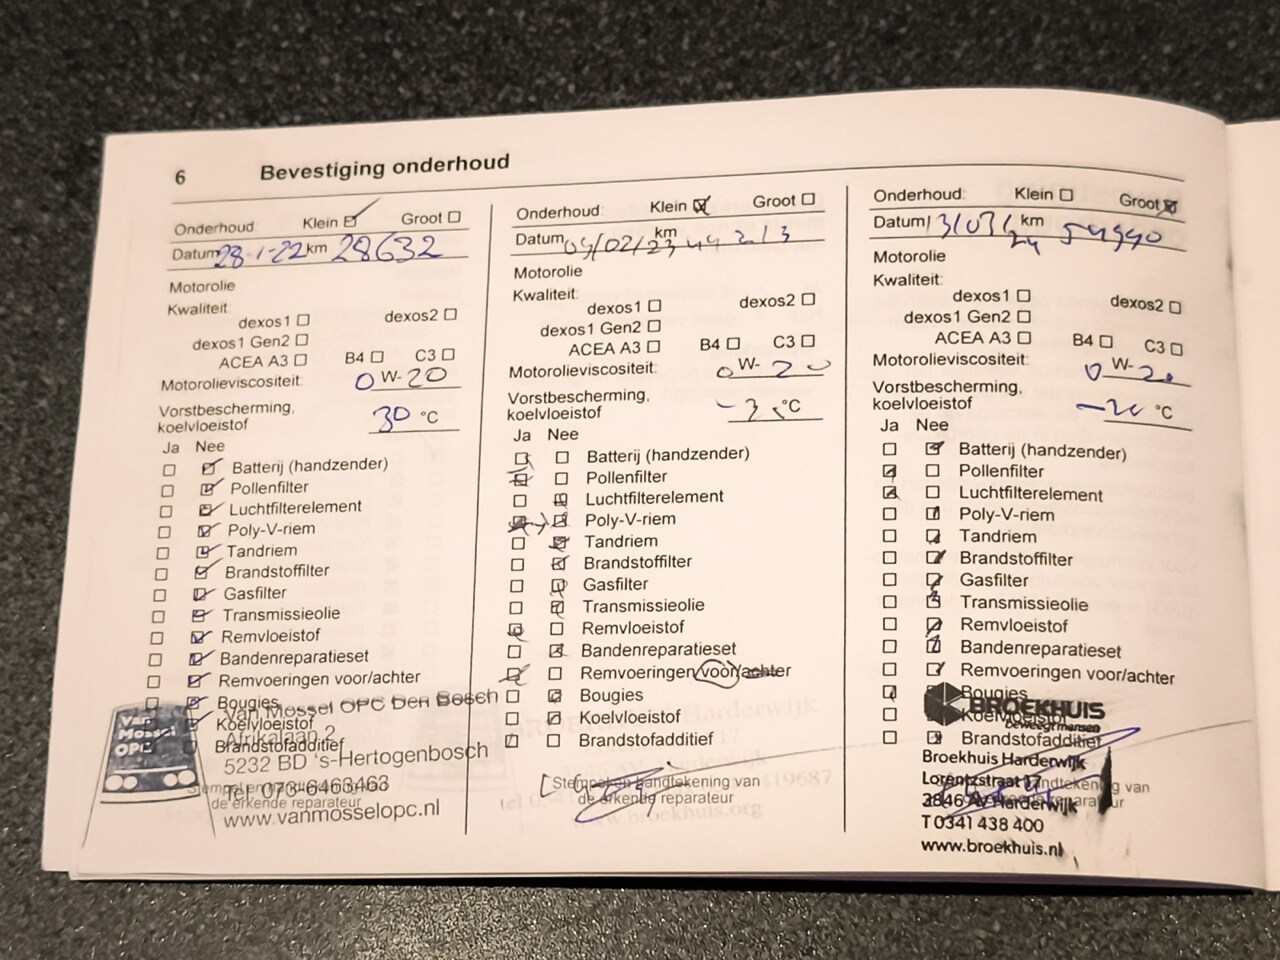 6 Bevestiging onderhoud
Onderhoud: Klein Groot
Datum 28-1-22 km 28632
Motorolie
Kwaliteit:
dexos1 dexos2
dexos1 Gen2
ACEA A3 B4 C3
Motorolieviscositeit: 0 W- 20
Vorstbescherming,
koelvloeistof 30 °C
Ja Nee
Batterij (handzender)
Pollenfilter
Luchtfilterelement
Poly-V-riem
Tandriem
Brandstoffilter
Gasfilter
Transmissieolie
Remvloeistof
Bandenreparatieset
Remvoeringen voor/achter
Bougies
Koelvloeistof
Brandstofadditief
Van Mossel OPC Den Bosch
Afrikalaan 2
5232 BD 's-Hertogenbosch
Tel. 073-6463463
www.vanmosselopc.nl
Van Mossel OPC
de erkende reparateur
Onderhoud: Klein Groot
Datum 09/02/23 km 44213
Motorolie
Kwaliteit:
dexos1 dexos2
dexos1 Gen2
ACEA A3 B4 C3
Motorolieviscositeit: 0 W- 20
Vorstbescherming,
koelvloeistof °C
Ja Nee
Batterij (handzender)
Pollenfilter
Luchtfilterelement
Poly-V-riem
Tandriem
Brandstoffilter
Gasfilter
Transmissieolie
Remvloeistof
Bandenreparatieset
Remvoeringen voor/achter
Bougies
Koelvloeistof
Brandstofadditief
Stempel en handtekening van
de erkende reparateur
Onderhoud: Klein Groot
Datum km
Motorolie
Kwaliteit:
dexos1 dexos2
dexos1 Gen2
ACEA A3 B4 C3
Motorolieviscositeit: 0 W- 20
Vorstbescherming,
koelvloeistof °C
Ja Nee
Batterij (handzender)
Pollenfilter
Luchtfilterelement
Poly-V-riem
Tandriem
Brandstoffilter
Gasfilter
Transmissieolie
Remvloeistof
Bandenreparatieset
Remvoeringen voor/achter
Bougies
Koelvloeistof
Brandstofadditief
BROEKHUIS
beweegt mensen
Broekhuis Harderwijk
Lorentzstraat 17
3846 AV Harderwijk
T 0341 438 400
www.broekhuis.nl